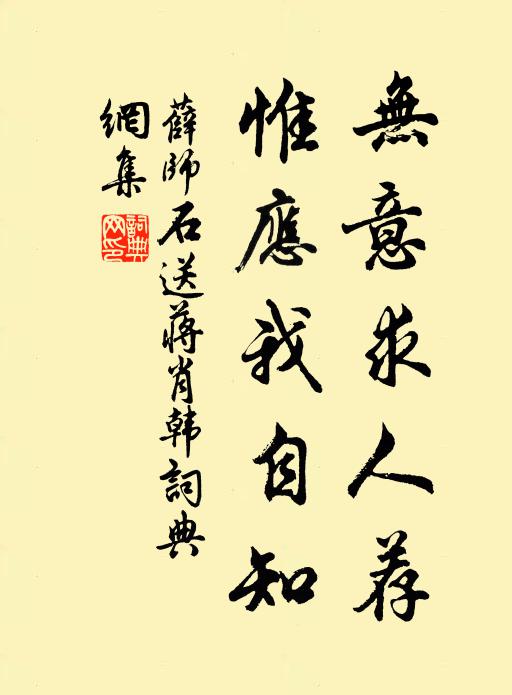 無意求人荐
惟應我自知
薛師石送蔣肖韩詞典
網集
詞典
网印